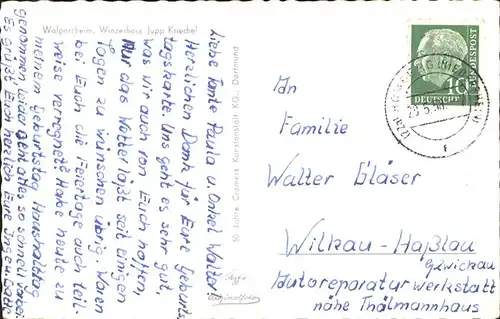 Walporzheim, Winzerhaus Jupp Kriechel
Liebe Tante Paula u. Onkel Walter!
Herzlichen Dank für Eure Geburts-
tagskarte. Uns geht es sehr gut,
was wir auch von Euch hoffen,
Nur das Wetter läßt seit einigen
Tagen zu wünschen übrig. Waren
bei Euch die Feiertage auch teil-
weise verregnet? Habe heute zu
meinem Geburtstag Haushalttag
genommen leider geht alles so schnell vorbei.
Es grüßt Euch herzlich Eure
50 Jahre Cramers Kunstanstalt KG., Dortmund
DEUTSCHE
BUNDESPOST
10
An
Familie
Walter Gläser
Wilkau-Haßlau
b/Zwickau
Autoreparaturwerkstatt
nähe Thälmannhaus